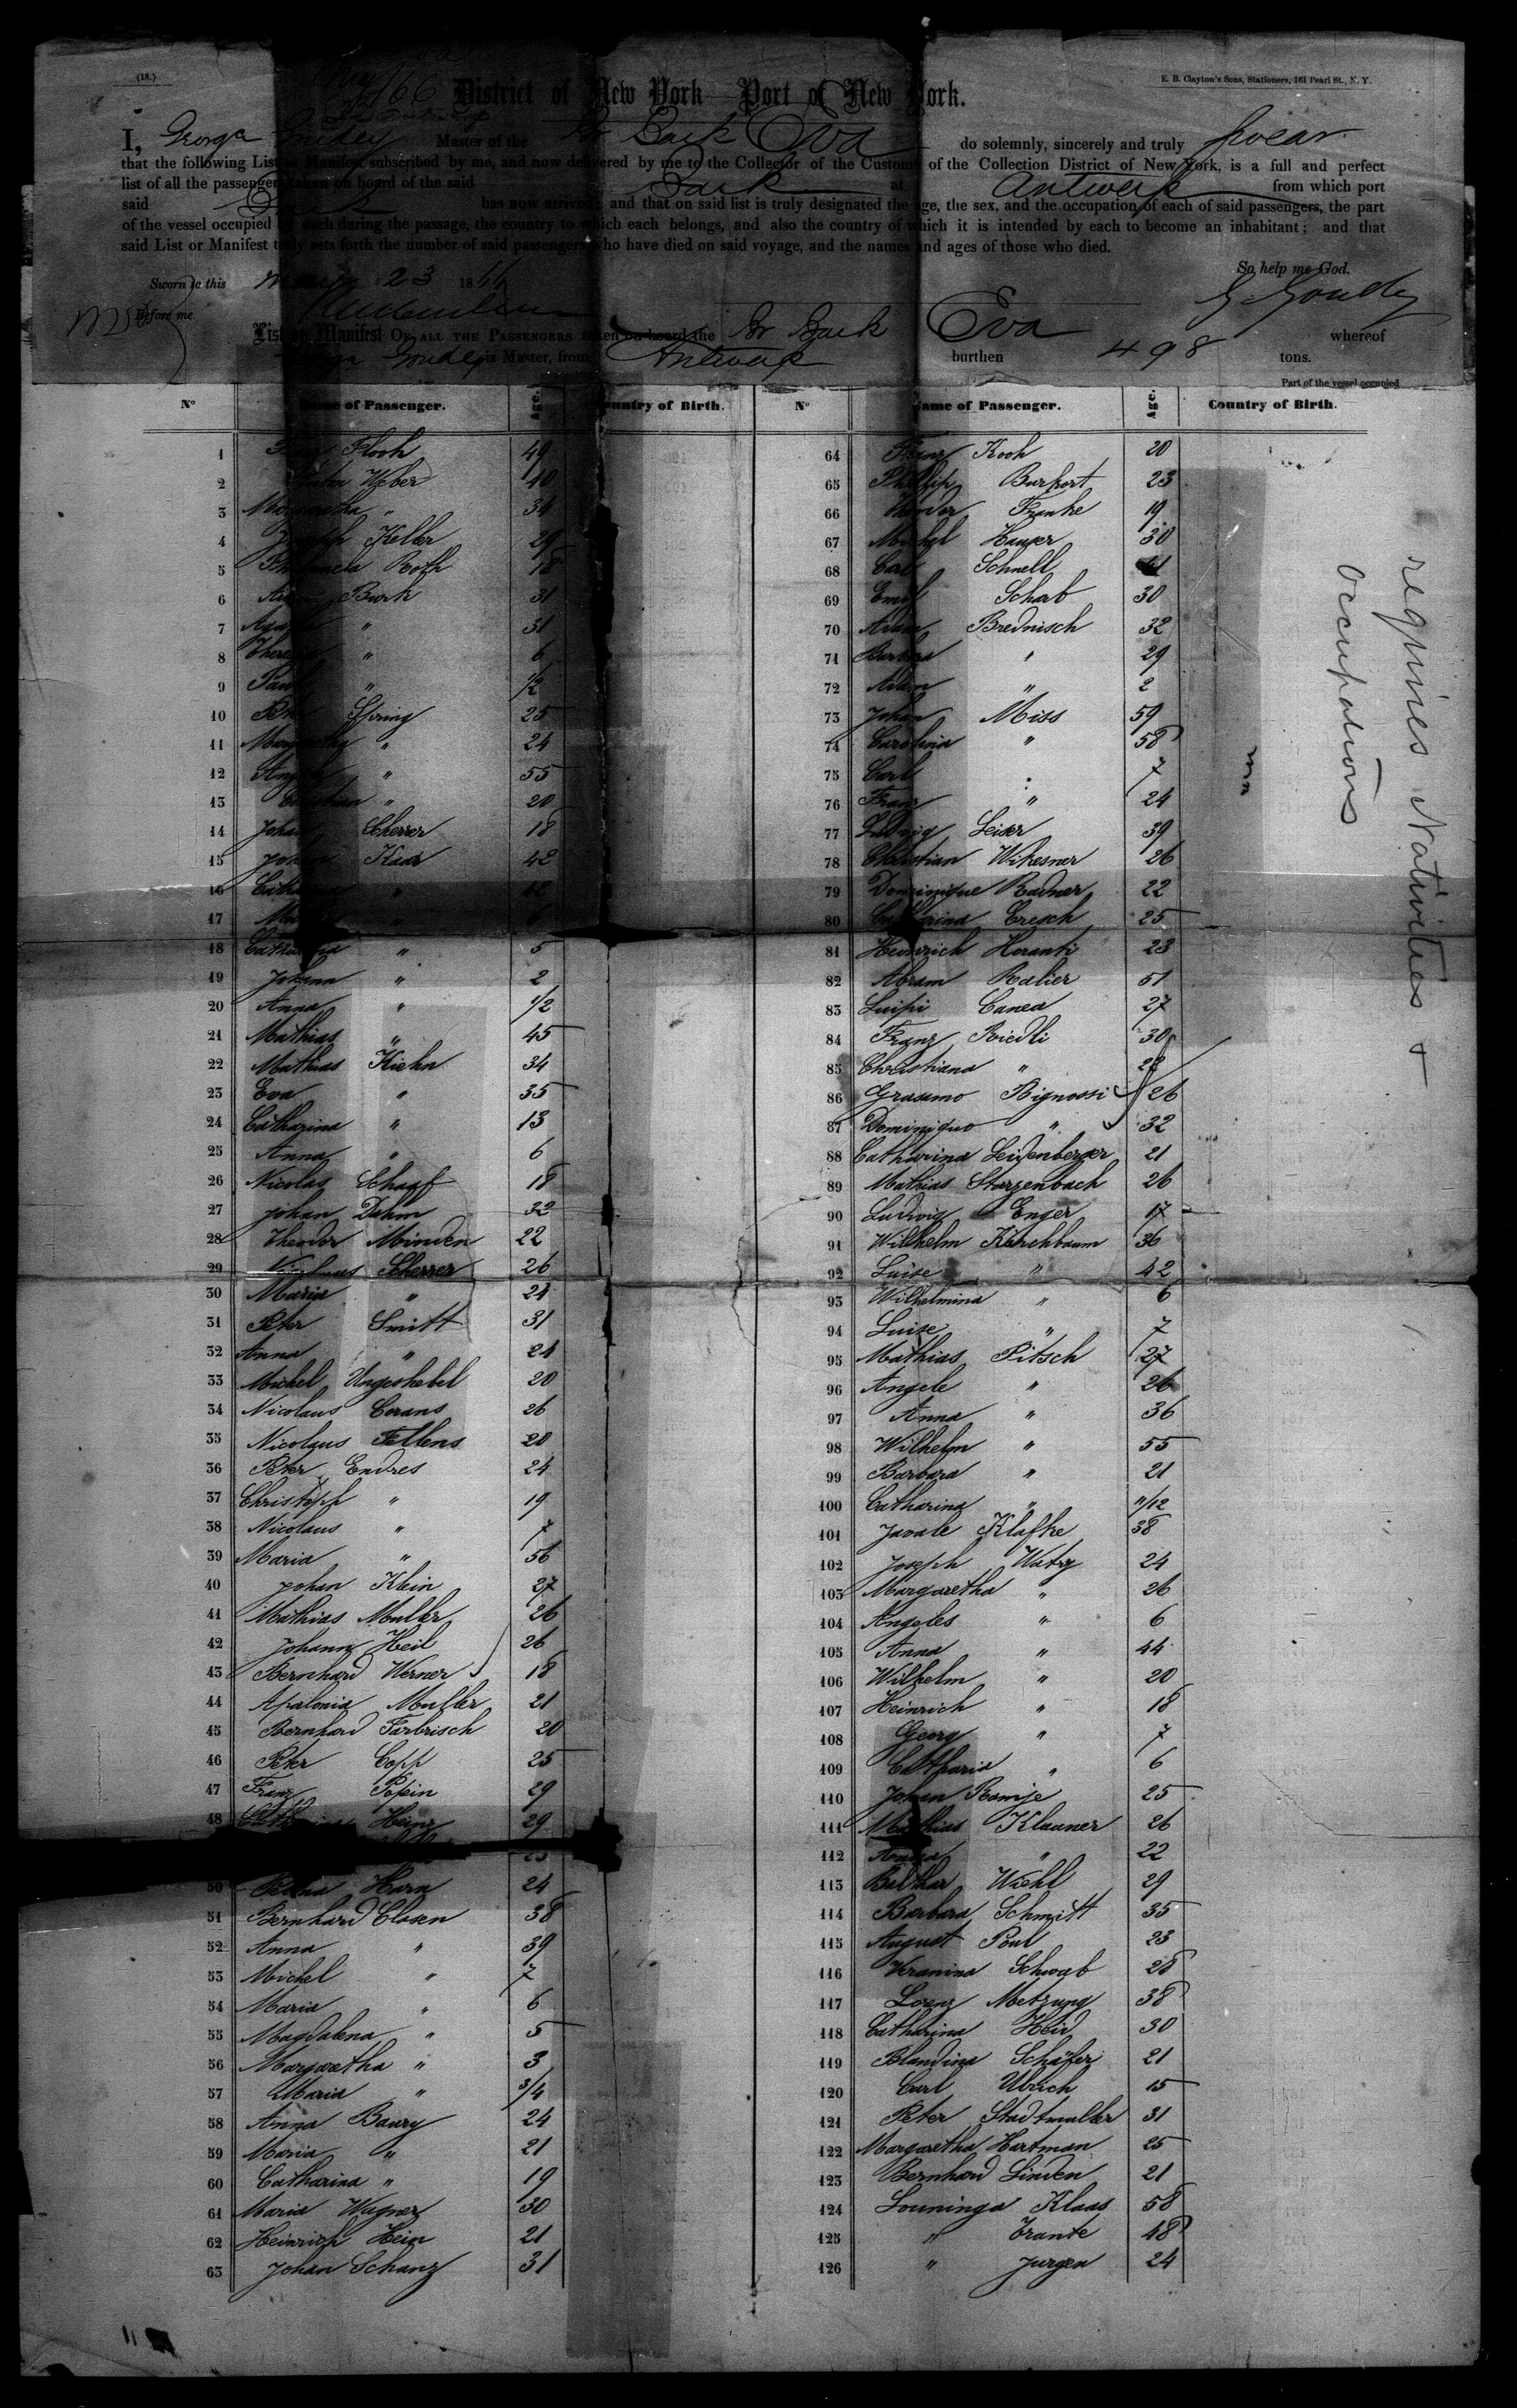 (18.)
E. B. Clayton's Sons, Stationers, 161 Pearl St., N. Y.
District of New York Port of New York.
I, George Goudey Master of the Br Bark Eva do solemnly, sincerely and truly swear
that the following List or Manifest subscribed by me, and now delivered by me to the Collector of the Customs of the Collection District of New York, is a full and perfect
list of all the passengers taken on board of the said Bark at Antwerp from which port
said Bark has now arrived; and that on said list is truly designated the age, the sex, and the occupation of each of said passengers, the part
of the vessel occupied by each during the passage, the country to which each belongs, and also the country of which it is intended by each to become an inhabitant; and that
said List or Manifest truly sets forth the number of said passengers who have died on said voyage, and the names and ages of those who died.
So help me God.
Sworn to this 23 1866
G Goudey
Before me
List or Manifest OF ALL THE PASSENGERS taken on board the Br Bark Eva whereof
Goudey is Master, from Antwerp burthen 498 tons.
Part of the vessel occupied
No Name of Passenger. Age. Country of Birth.
1 Floch 49
2 Weber 40
3 Margaretha " 34
4 Keller 29
5 Roth 18
6 Burk 31
7 " 31
8 Theresa " 6
9 Paul " 1/2
10 Peter Spring 25
11 " 24
12 " 55
13 Christian " 20
14 Johan Scherrer 18
15 Johan Kaas 42
16 " 42
17 " 6
18 Catharina " 5
19 Johann " 2
20 Anna " 1/2
21 Mathias " 45
22 Mathias Kiehn 34
23 Eva " 35
24 Catharina " 13
25 Anna " 6
26 Nicolas Schaaf 18
27 Johan Dahm 32
28 Theodor Minden 22
29 Nicolaus Scherrer 26
30 Maria " 24
31 Peter Smitt 31
32 Anna " 24
33 Michel Ungeshebel 20
34 Nicolaus Corans 26
35 Nicolaus Fellens 20
36 Peter Endres 24
37 Christoph " 19
38 Nicolaus " 7
39 Maria " 56
40 Johan Klein 27
41 Mathias Muller 26
42 Johann Heil 26
43 Bernhard Werner 18
44 Apalonia Muller 21
45 Bernhard Farbrisch 20
46 Peter Copp 25
47 Franz Popein 29
48 Heinz 29
50 Harn 24
51 Bernhard Closen 38
52 Anna " 39
53 Michel " 7
54 Maria " 6
55 Magdalena " 5
56 Margaretha " 3
57 Maria " 3/4
58 Anna Baury 24
59 Maria " 21
60 Catharina " 19
61 Maria Wagner 30
62 Heinrich Hein 21
63 Johan Schanz 31
No Name of Passenger. Age. Country of Birth.
64 Franz Koch 20
65 Phillip Burkort 23
66 Theodor Franke 19
67 Michel Hauser 30
68 Carl Schnell 41
69 Emil Scharb 30
70 Adam Brednisch 32
71 Barbara " 29
72 Adam " 2
73 Johan Miss 59
74 Carolina " 58
75 Carl " 7
76 Franz " 24
77 Ludwig Leiser 39
78 Christian Wikesner 26
79 Dominique Radner 22
80 Catharina Cresch 25
81 Heinrich Horanti 23
82 Abram Ralier 51
83 Luipi Canea 27
84 Franz Riedli 30
85 Christiana " 22
86 Grasamo Bignossi 26
87 Dominiquo " 32
88 Catharina Leidenberger 21
89 Mathias Starzenbach 26
90 Ludwig Enger 17
91 Wilhelm Kirchbaum 36
92 Luise " 42
93 Wilhelmina " 6
94 Luise " 7
95 Mathias Pitsch 27
96 Angele " 26
97 Anna " 36
98 Wilhelm " 55
99 Barbara " 21
100 Catharina " 11/12
101 Janale Klafke 38
102 Joseph Watry 24
103 Margaretha " 26
104 Angeles " 6
105 Anna " 44
106 Wilhelm " 20
107 Heinrich " 18
108 Georg " 7
109 Catharia " 6
110 Johan Ramije 25
111 Mathias Klauner 26
112 Anna " 22
113 Balthar Wiehl 29
114 Barbara Schmitt 35
115 August Poul 23
116 Veranina Schwab 28
117 Lorenz Metzung 38
118 Catharina Heid 30
119 Blandina Schäfer 21
120 Carl Ulrich 15
121 Peter Stadtmuller 31
122 Margaretha Hartman 25
123 Bernhard Linden 21
124 Louninga Klaas 58
125 " Trante 48
126 " Jurgen 24
requires Nativities +
occupations